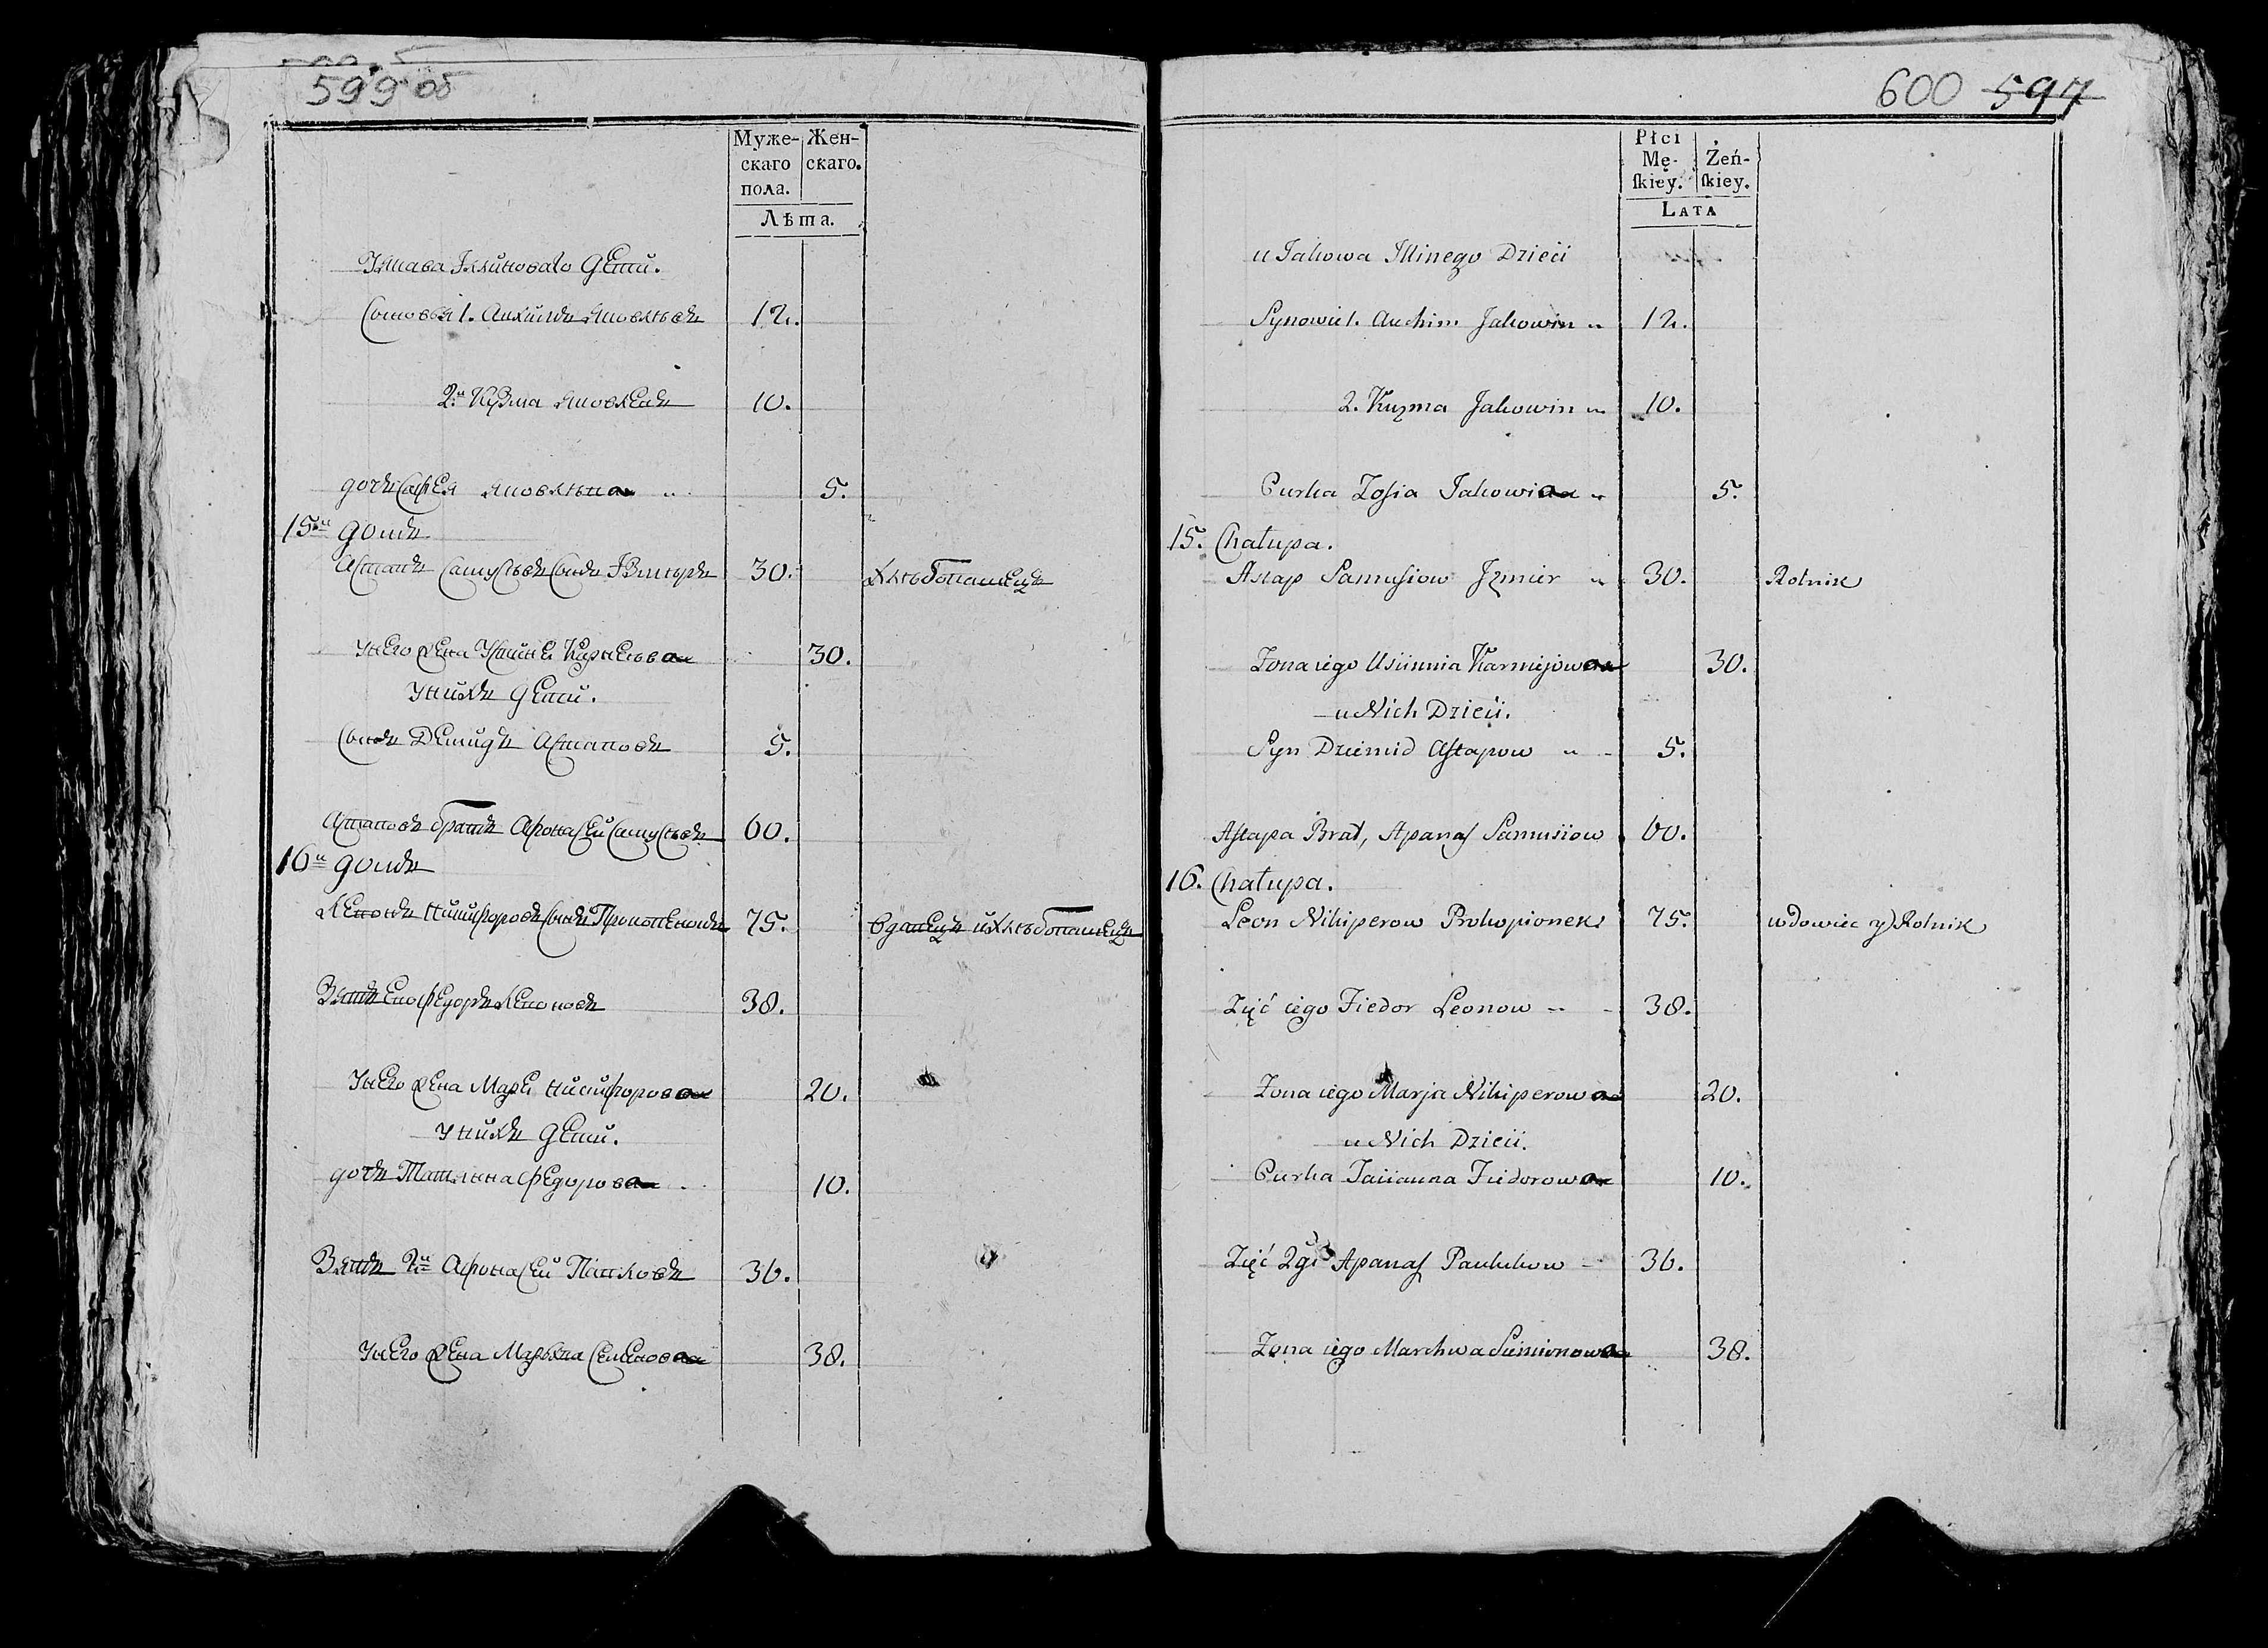 599 об
Муже-
скаго
пола.
Жен-
скаго.
Лѣта.
Якова Ильинова Дети.
Сыновья 1. Анхимъ Яковлевъ 12.
2й Кузма Яковлевъ 10.
дочь Софея Яковлевна 5.
15й домъ
Астапъ Самусѣвъ сынъ Измѣръ 30. хлѣбопашецъ
У него жена Устинѣ Карнѣева 30.
У нихъ Дети.
Сынъ Демидъ Астаповъ 5.
Астаповъ братъ Афонасей Самусѣвъ 60.
16й домъ
Леонъ Никифоровъ сынъ Прокопенокъ 75. вдовецъ и хлѣбопашецъ
Зять его Федоръ Леоновъ 38.
У него жена Маря Никифорова 20.
У нихъ Дети.
дочь Татьяна Федорова 10.
Зять 2й Афонасей 36.
У него жена Марѳа Семенова 38.
600 597
Płci
Mę-
ſkiey.
Żeń-
ſkiey.
Lata
u Jakowa Illinego Dzieci
Synowie 1. Auchim Jakowin 12.
2. Kuzma Jakowin 10.
Curka Zosia Jakowina 5.
15. Chałupa.
Astap Samusiow Jzmier 30. Rolnik
Zona iego Usiinnia Karniejowa 30.
u Nich Dzieci.
Syn Dziemid Astapow 5.
Astapa Brat, Apanas Samusiow 60.
16. Chałupa.
Leon Nikiperow Prokopionek 75. wdowiec y Rolnik
Zięć iego Fiedor Leonow 38.
Zona iego Marja Nikiperowa 20.
u Nich Dzieci.
Curka Taciana Fiedorowa 10.
Zięć 2gi Apanas Paulukow 36.
Zona iego Marchwa Siemionowa 38.